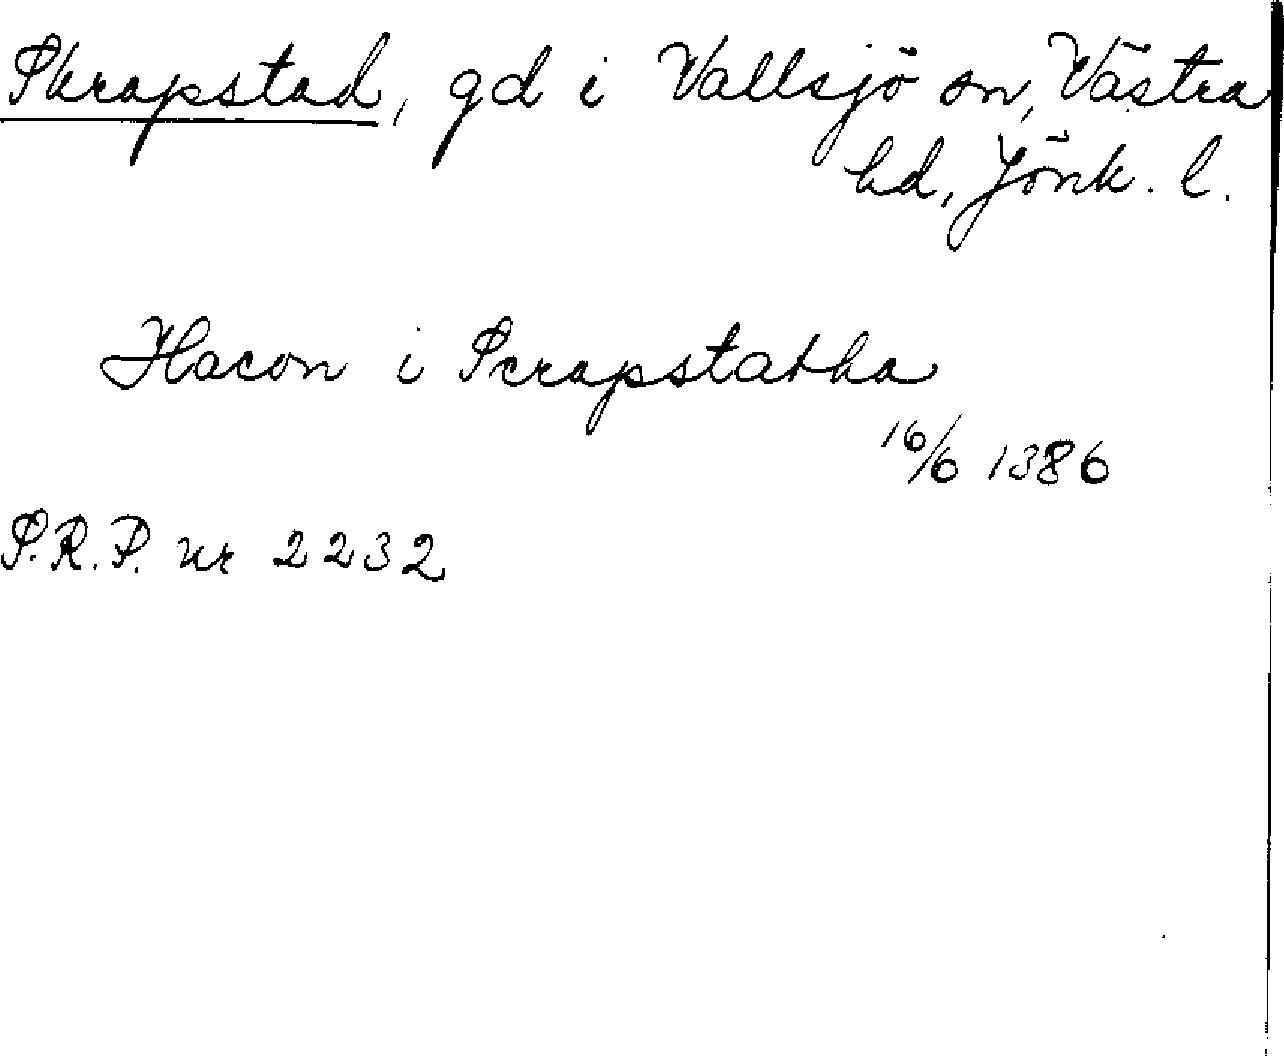 Skrapstad, gd i Vallsjö sn, Västra
hd, Jönk. l.
Hacon i Scrapstatha
16/6 1386
S.R.P. nr 2232